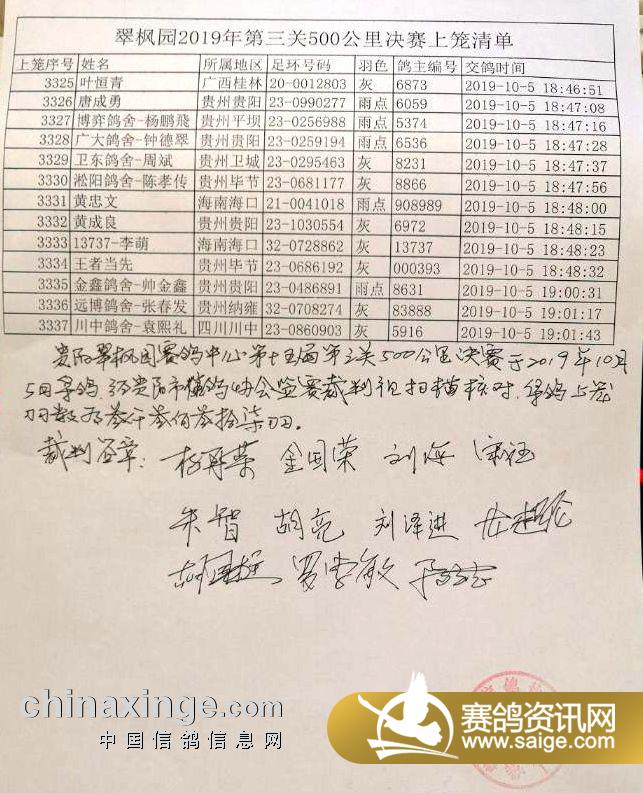 翠枫园2019年第三关500公里决赛上笼清单
上笼序号 姓名 所属地区 足环号码 羽色 鸽主编号 交鸽时间
3325 叶恒青 广西桂林 20-0012803 灰 6873 2019-10-5 18:46:51
3326 唐成勇 贵州贵阳 23-0990277 雨点 6059 2019-10-5 18:47:08
3327 博弈鸽舍-杨鹏飛 贵州平坝 23-0256988 雨点 5374 2019-10-5 18:47:16
3328 广大鸽舍-钟德翠 贵州贵阳 23-0259194 雨点 6536 2019-10-5 18:47:28
3329 卫东鸽舍-周斌 贵州卫城 23-0295463 灰 8231 2019-10-5 18:47:37
3330 淞阳鸽舍-陈孝传 贵州毕节 23-0681177 灰 8866 2019-10-5 18:47:56
3331 黄忠文 海南海口 21-0041018 雨点 908989 2019-10-5 18:48:00
3332 黄成良 贵州贵阳 23-1030554 灰 6972 2019-10-5 18:48:15
3333 13737-李萌 海南海口 32-0728862 灰 13737 2019-10-5 18:48:23
3334 王者当先 贵州毕节 23-0686192 灰 000393 2019-10-5 18:48:32
3335 金鑫鸽舍-帅金鑫 贵州贵阳 23-0486891 雨点 8631 2019-10-5 19:00:31
3336 远博鸽舍-张春发 贵州纳雍 32-0708274 灰 83888 2019-10-5 19:01:17
3337 川中鸽舍-袁熙礼 四川川中 23-0860903 灰 5916 2019-10-5 19:01:43
贵阳翠枫园赛鸽中心第十五届第三关500公里决赛于2019年10月
5日集鸽 经贵阳市信鸽协会监赛裁判组扫描核对,集鸽上笼
羽数为叁仟叁佰叁拾柒羽。
裁判签章: 金国荣 刘海
朱智 胡亮 刘泽进
chinaxinge.com
中国信鸽信息网
赛鸽资讯网
www.saige.com